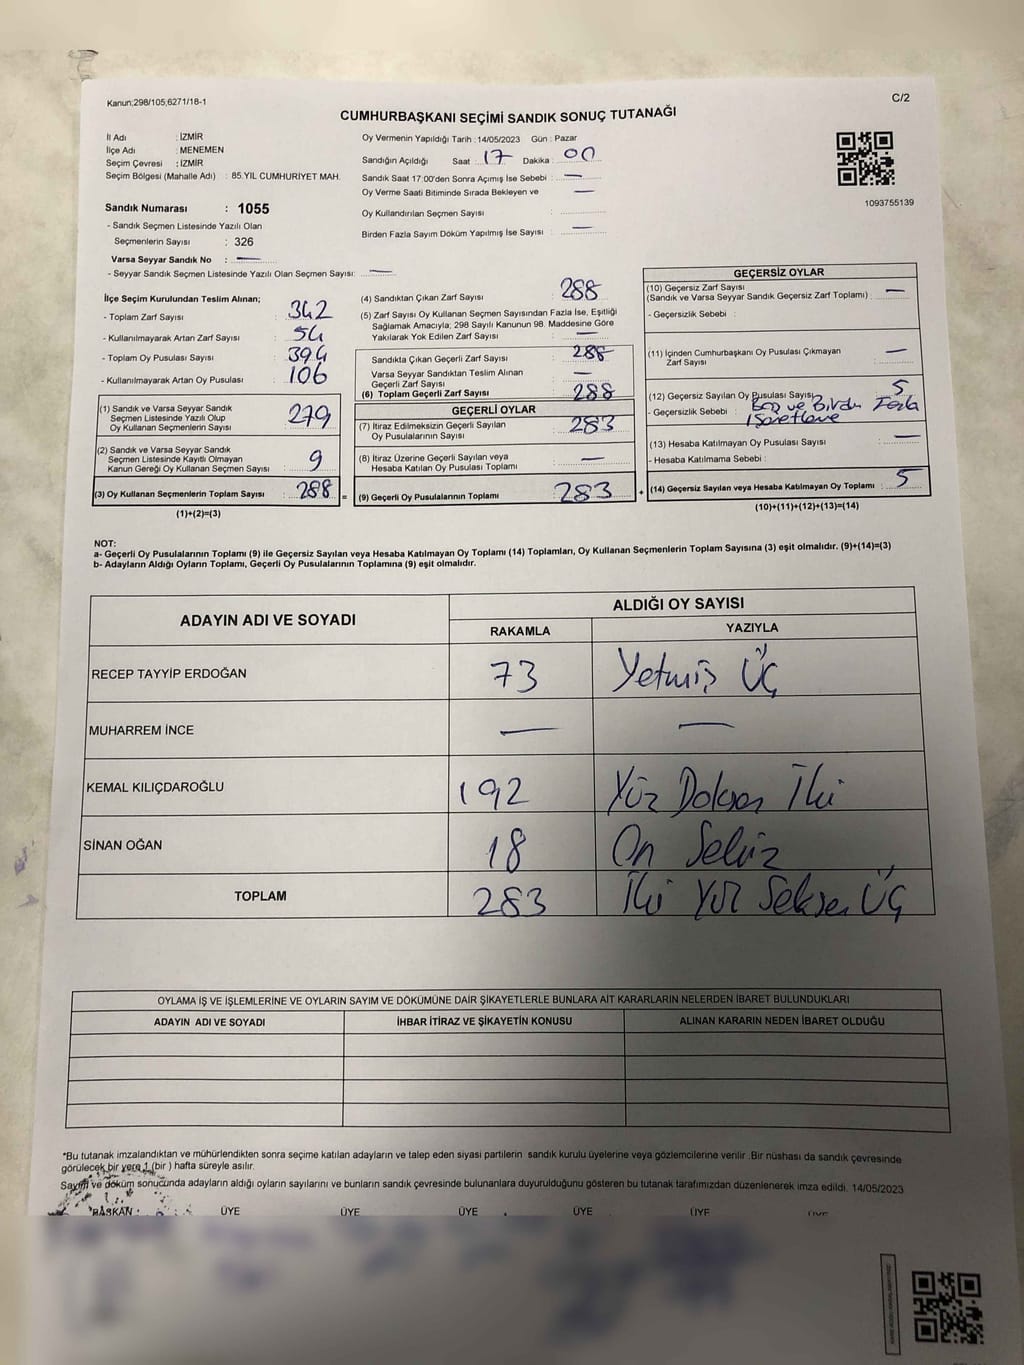 Kanun;298/105;6271/18-1
C/2
CUMHURBAŞKANI SEÇİMİ SANDIK SONUÇ TUTANAĞI
İl Adı : İZMİR
İlçe Adı : MENEMEN
Seçim Çevresi : İZMİR
Seçim Bölgesi (Mahalle Adı) : 85.YIL CUMHURİYET MAH.
Sandık Numarası : 1055
- Sandık Seçmen Listesinde Yazılı Olan
Seçmenlerin Sayısı : 326
Varsa Seyyar Sandık No : —
- Seyyar Sandık Seçmen Listesinde Yazılı Olan Seçmen Sayısı: —
Oy Vermenin Yapıldığı Tarih : 14/05/2023 Gün : Pazar
Sandığın Açıldığı Saat : 17 Dakika : 00
Sandık Saat 17:00'den Sonra Açımış İse Sebebi : —
Oy Verme Saati Bitiminde Sırada Bekleyen ve —
Oy Kullandırılan Seçmen Sayısı :
Birden Fazla Sayım Döküm Yapılmış İse Sayısı : —
1093755139
İlçe Seçim Kurulundan Teslim Alınan;
- Toplam Zarf Sayısı : 342
- Kullanılmayarak Artan Zarf Sayısı : 54
- Toplam Oy Pusulası Sayısı : 394
- Kullanılmayarak Artan Oy Pusulası : 106
(1) Sandık ve Varsa Seyyar Sandık
Seçmen Listesinde Yazılı Olup
Oy Kullanan Seçmenlerin Sayısı : 279
(2) Sandık ve Varsa Seyyar Sandık
Seçmen Listesinde Kayıtlı Olmayan
Kanun Gereği Oy Kullanan Seçmen Sayısı : 9
(3) Oy Kullanan Seçmenlerin Toplam Sayısı : 288 =
(1)+(2)=(3)
(4) Sandıktan Çıkan Zarf Sayısı : 288
(5) Zarf Sayısı Oy Kullanan Seçmen Sayısından Fazla İse, Eşitliği
Sağlamak Amacıyla; 298 Sayılı Kanunun 98. Maddesine Göre
Yakılarak Yok Edilen Zarf Sayısı : —
Sandıkta Çıkan Geçerli Zarf Sayısı : 288
Varsa Seyyar Sandıktan Teslim Alınan
Geçerli Zarf Sayısı : —
(6) Toplam Geçerli Zarf Sayısı : 288
GEÇERLİ OYLAR
(7) İtiraz Edilmeksizin Geçerli Sayılan
Oy Pusulalarının Sayısı : 283
(8) İtiraz Üzerine Geçerli Sayılan veya
Hesaba Katılan Oy Pusulası Toplamı : —
(9) Geçerli Oy Pusulalarının Toplamı : 283 +
GEÇERSİZ OYLAR
(10) Geçersiz Zarf Sayısı
(Sandık ve Varsa Seyyar Sandık Geçersiz Zarf Toplamı) : —
- Geçersizlik Sebebi :
(11) İçinden Cumhurbaşkanı Oy Pusulası Çıkmayan
Zarf Sayısı : —
(12) Geçersiz Sayılan Oy Pusulası Sayısı : 5
- Geçersizlik Sebebi : Boş ve Birden Fazla
İşaretleme
(13) Hesaba Katılmayan Oy Pusulası Sayısı : —
- Hesaba Katılmama Sebebi :
(14) Geçersiz Sayılan veya Hesaba Katılmayan Oy Toplamı : 5
(10)+(11)+(12)+(13)=(14)
NOT:
a- Geçerli Oy Pusulalarının Toplamı (9) ile Geçersiz Sayılan veya Hesaba Katılmayan Oy Toplamı (14) Toplamları, Oy Kullanan Seçmenlerin Toplam Sayısına (3) eşit olmalıdır. (9)+(14)=(3)
b- Adayların Aldığı Oyların Toplamı, Geçerli Oy Pusulalarının Toplamına (9) eşit olmalıdır.
ADAYIN ADI VE SOYADI
ALDIĞI OY SAYISI
RAKAMLA YAZIYLA
RECEP TAYYİP ERDOĞAN 73 Yetmiş Üç
MUHARREM İNCE — —
KEMAL KILIÇDAROĞLU 192 Yüz Doksan İki
SİNAN OĞAN 18 On Sekiz
TOPLAM 283 İki Yüz Seksen Üç
OYLAMA İŞ VE İŞLEMLERİNE VE OYLARIN SAYIM VE DÖKÜMÜNE DAİR ŞİKAYETLERLE BUNLARA AİT KARARLARIN NELERDEN İBARET BULUNDUKLARI
ADAYIN ADI VE SOYADI İHBAR İTİRAZ VE ŞİKAYETİN KONUSU ALINAN KARARIN NEDEN İBARET OLDUĞU
*Bu tutanak imzalandıktan ve mühürlendikten sonra seçime katılan adayların ve talep eden siyasi partilerin sandık kurulu üyelerine veya gözlemcilerine verilir .Bir nüshası da sandık çevresinde
görülecek bir yere 1 (bir ) hafta süreyle asılır.
Sayım ve döküm sonucunda adayların aldığı oyların sayılarını ve bunların sandık çevresinde bulunanlara duyurulduğunu gösteren bu tutanak tarafımızdan düzenlenerek imza edildi. 14/05/2023
BAŞKAN ÜYE ÜYE ÜYE ÜYE ÜYE ÜYE